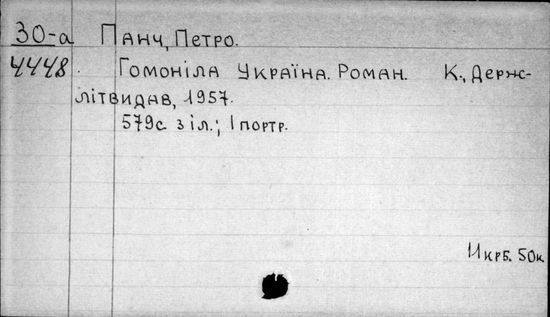 30-а Панч, Петро.
4448. Гомоніла Україна. Роман. К., Держ-
літвидав, 1957.
579с. з іл.; 1 портр.
11крб. 50к.